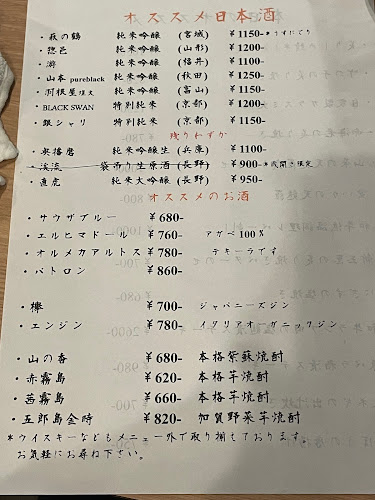 オススメ日本酒
・萩の鶴 純米吟醸 (宮城) ¥1150-*うすにごり
・惣邑 純米吟醸 (山形) ¥1200-
・澵 純米吟醸 (信井) ¥1100-
・山本 pureblack 純米吟醸 (秋田) ¥1250-
・羽根屋煌火 純米吟醸 (富山) ¥1150-
・BLACK SWAN 特別純米 (京都) ¥1200-
・銀シャリ 特別純米 (京都) ¥1150-
残りわずか
・奥播磨 純米吟醸生 (兵庫) ¥1100-
・渓流 袋吊り生原酒 (長野) ¥900-*浅間き限定
・直虎 純米大吟醸 (長野) ¥950-
オススメのお酒
・サウザブルー ¥680-
・エルヒマドール ¥760- アガベ100%
・オルメカアルトス ¥780- テキーラです
・パトロン ¥860-
・欅 ¥700- ジャパニーズジン
・エンジン ¥780- イタリアオーガニックジン
・山の香 ¥680- 本格紫蘇焼酎
・赤霧島 ¥620- 本格芋焼酎
・茜霧島 ¥660- 本格芋焼酎
・五郎島金時 ¥820- 加賀野菜芋焼酎
*ウイスキーなどもメニュー外で取り揃えております。
お気軽にお尋ね下さい。